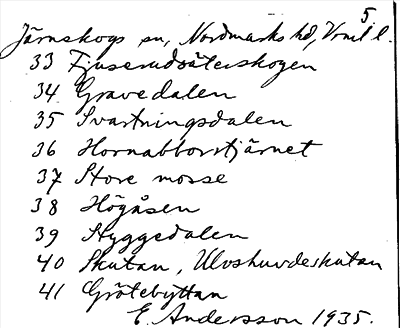 5.
Järnskogs sn, Nordmarks hd, Vrml. l.
33 Fjuserudsäterskogen
34 Gravedalen
35 Svartningsdalen
36 Hornabborrtjärnet
37 Store mosse
38 Högåsen
39 Styggedalen
40 Skutan, Ulvshuvdeskutan
41 Grötebyttan
E. Andersson 1935.